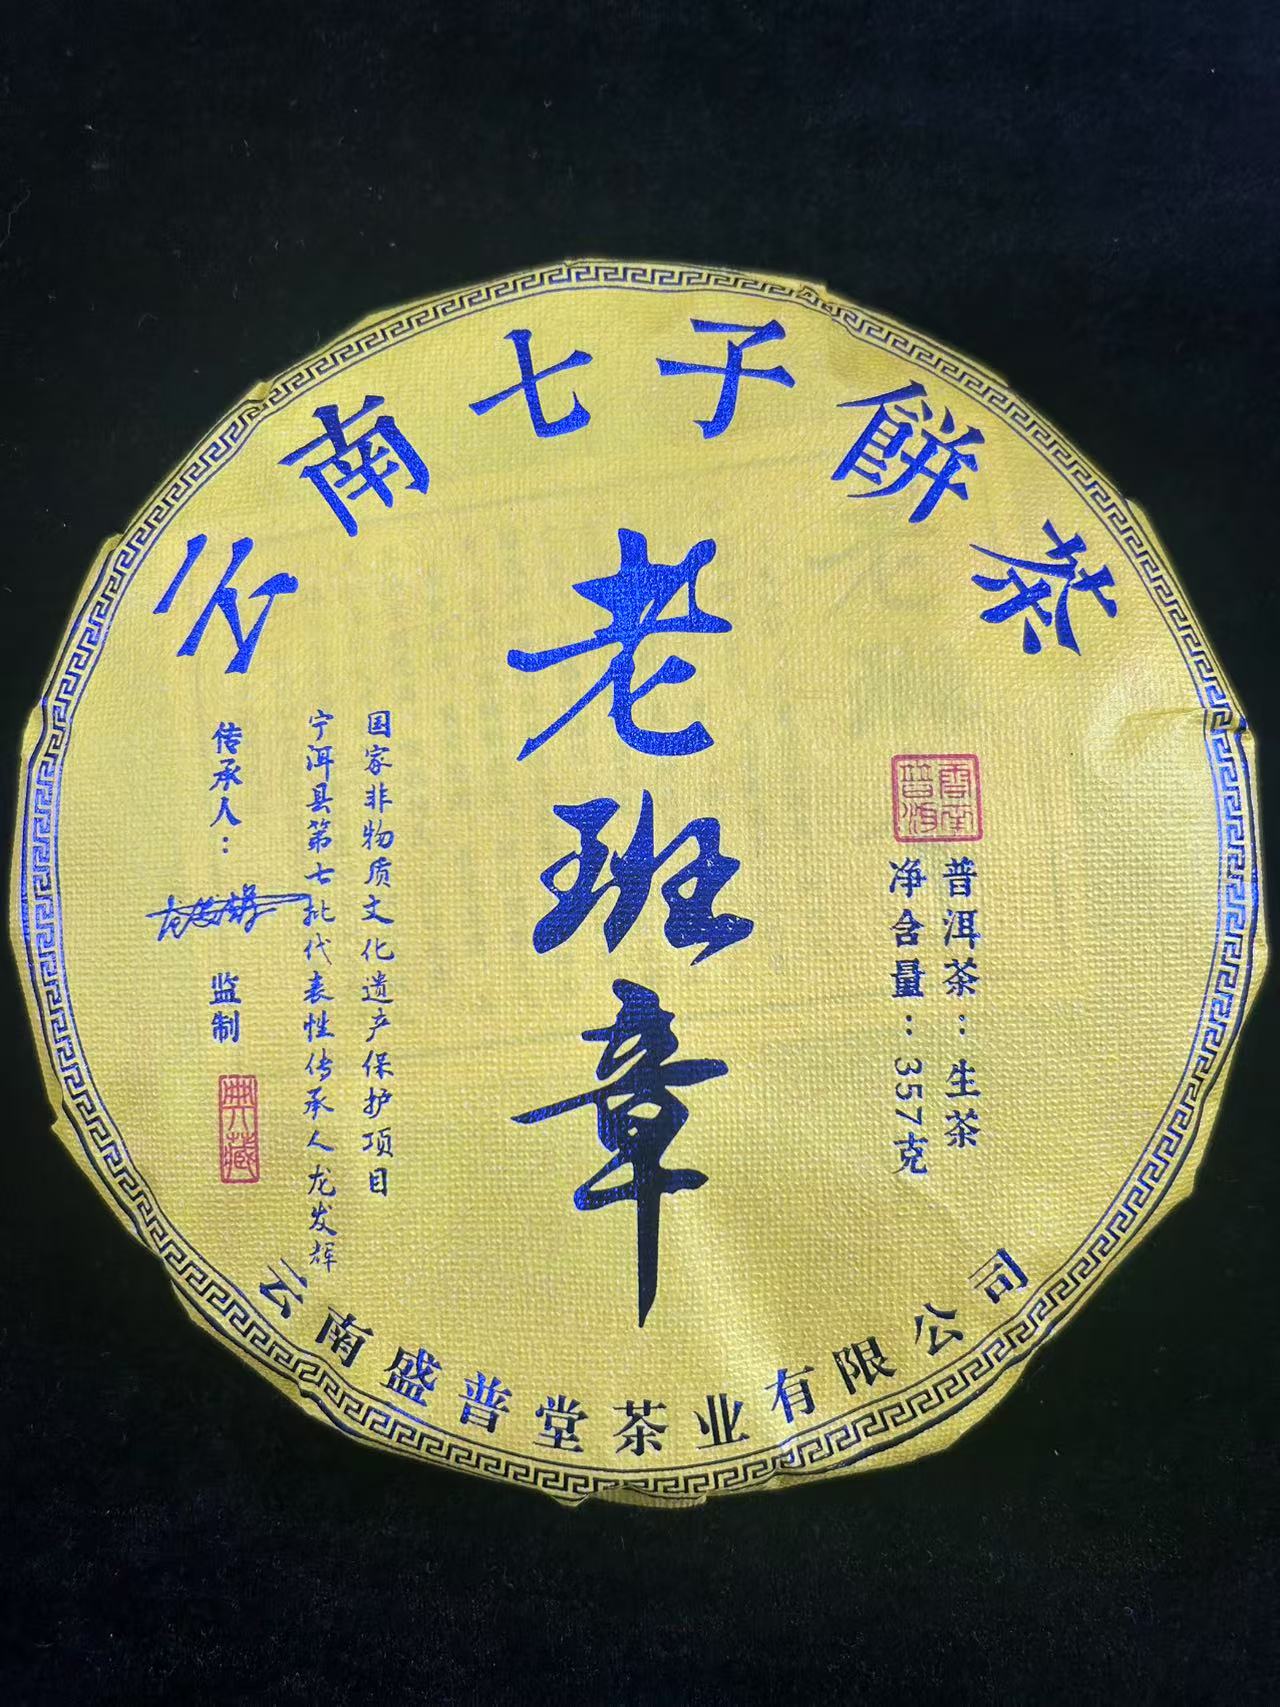 云南七子餅茶
老班章
雲南
普洱
普洱茶：生茶
净含量：357克
国家非物质文化遗产保护项目
宁洱县第七批代表性传承人龙发辉
传承人：
监制
典藏
云南盛普堂茶业有限公司